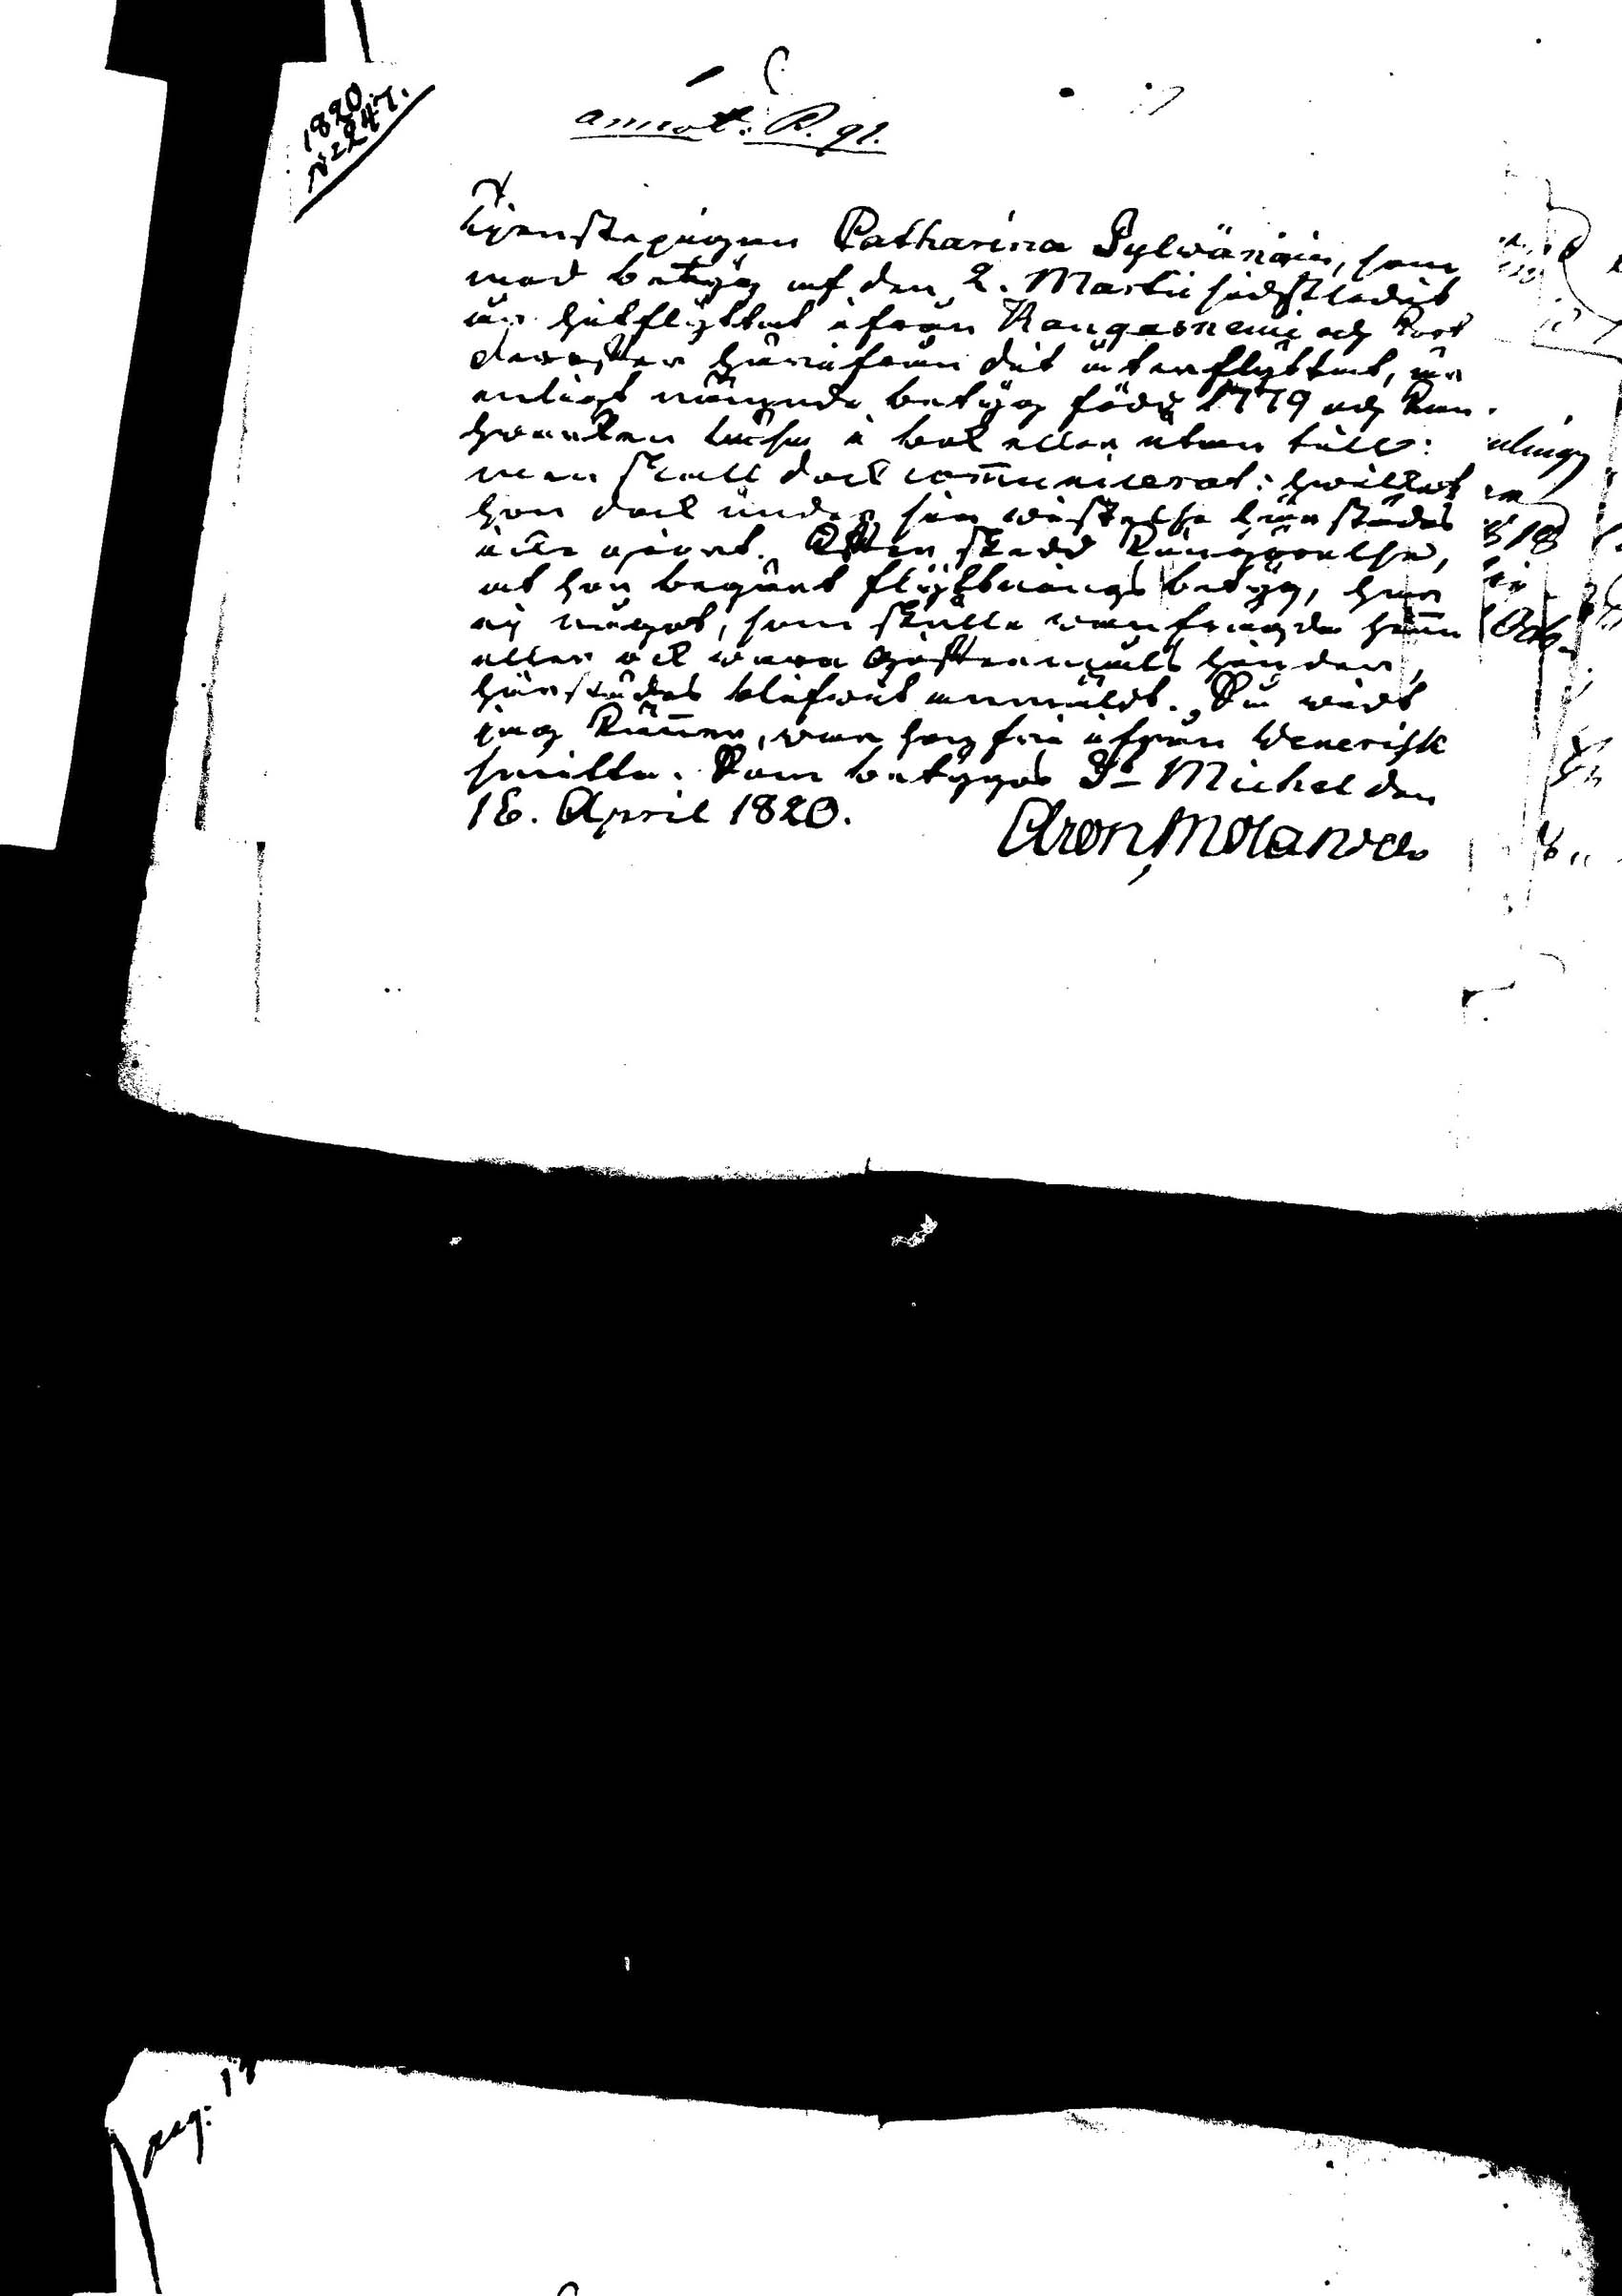 1820.
N: 247.
annot: P. 91.
Tjenstepigan Catharina Sylwänain, som
med betyg af den 2. Martii sidstledit
är hitflyttat ifrån Kangasnemi och kort
derefter härifrån dit återflyttat, är
enligt nämnde betyg född 1779 och kan
hwarken läsa i bok eller utan till:
men skall dock com̄unicerat: hwilket
hon dock under sin wistelse härstädes
icke giort. Efter skedd kungörelse,
at hon begärt flyttnings betyg, har
ej något, som skulle wanfrägda hen̄e
eller ock wara Giftermåls hinder,
härstädes blifwit anmäldt. Så widt
jag kän̄er, war hon fri ifrån Venerisk
smitta. Som betygas St Michel den
16. April 1820.
Aron Molander
pag: 17